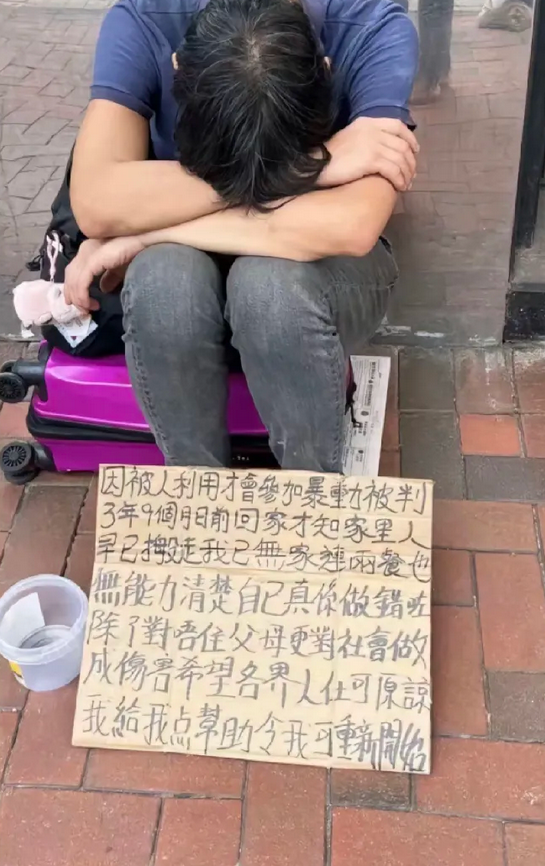 因被人利用才會參加暴動被判
3年9個月日前回家才知家里人
早已搬走我已無家連兩餐也
無能力清楚自己真係做錯咗
除了對唔住父母更對社會做
成傷害希望各界人仕可原諒
我給我点幫助令我可重新開始